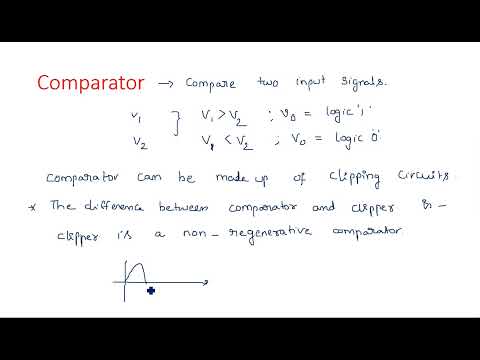 Comparator → Compare two input signals.
V1 } V1 > V2 ; V0 = logic '1'
V2 V1 < V2 ; V0 = logic '0'
comparator can be made up of clipping circuits.
* The difference between comparator and clipper is -
clipper is a non-regenerative comparator